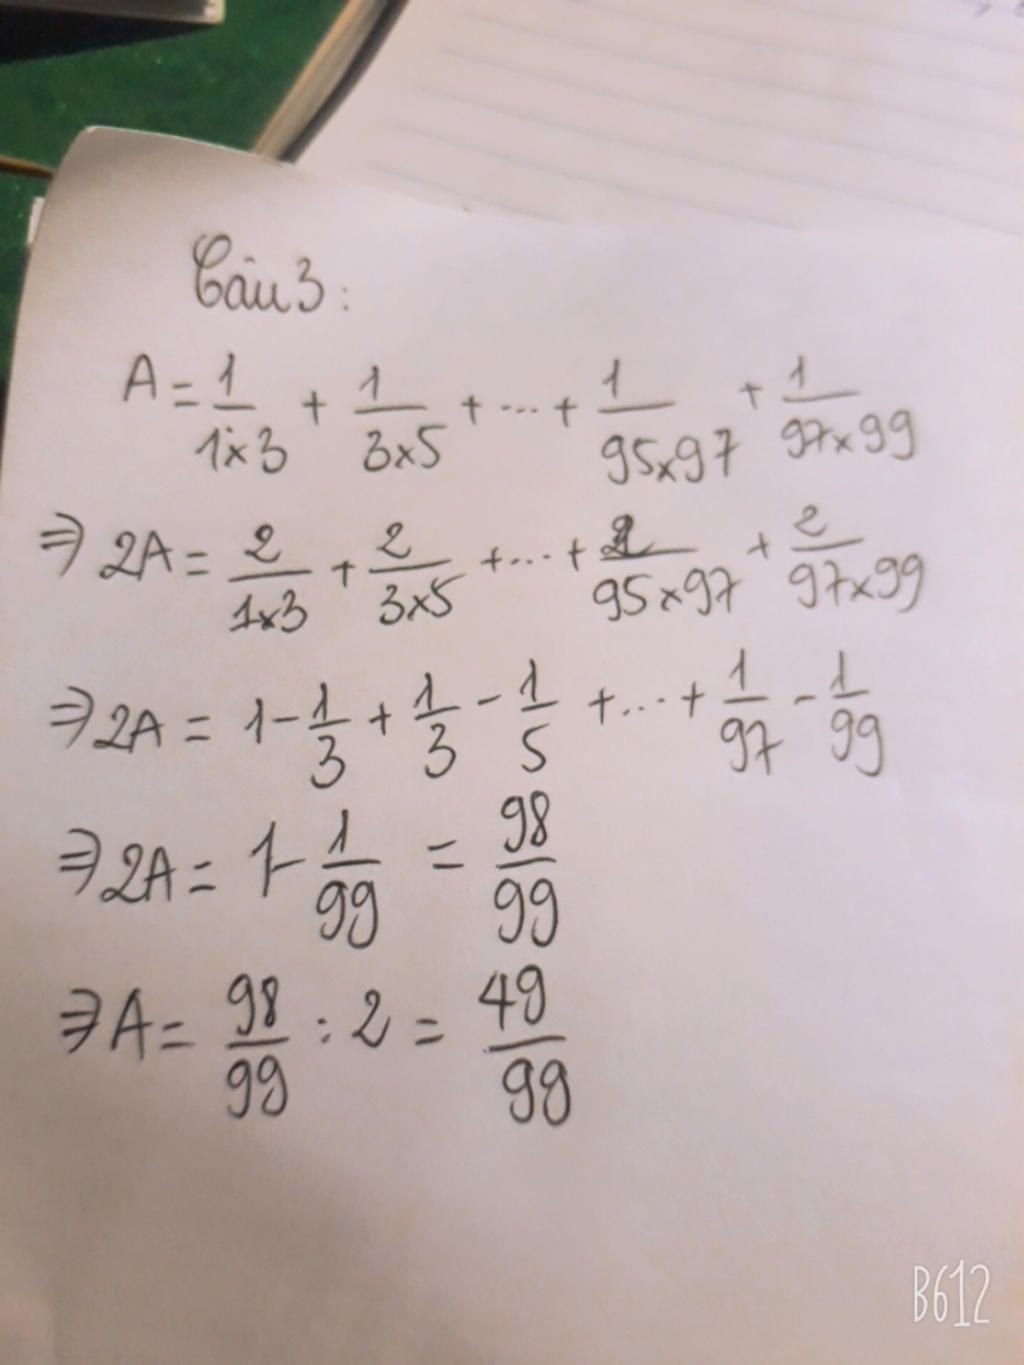 Câu 3:
A = 1/(1x3) + 1/(3x5) + ... + 1/(95x97) + 1/(97x99)
⇒ 2A = 2/(1x3) + 2/(3x5) + ... + 2/(95x97) + 2/(97x99)
⇒ 2A = 1 - 1/3 + 1/3 - 1/5 + ... + 1/97 - 1/99
⇒ 2A = 1 - 1/99 = 98/99
⇒ A = 98/99 : 2 = 49/99
B612